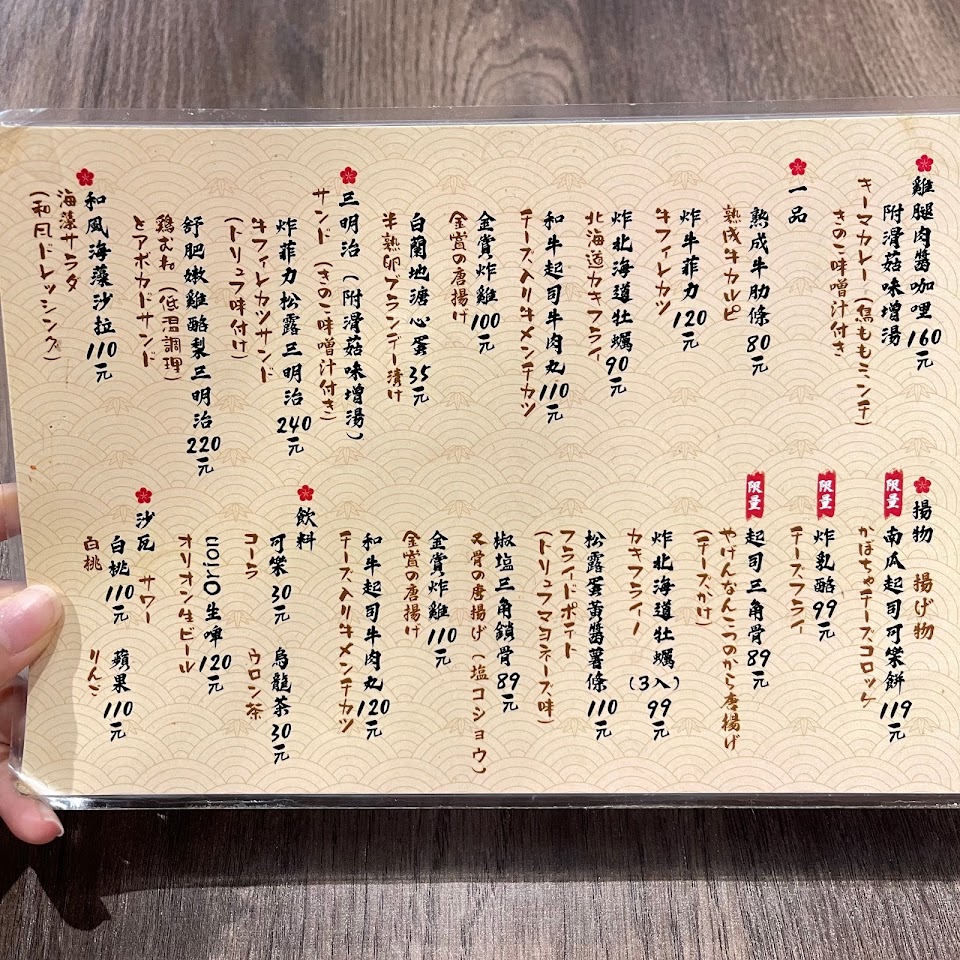 雞腿肉醬咖哩 160元
附滑菇味增湯
キーマカレー(鳥ももミンチ)
きのこ味噌汁付き
一品
熟成牛肋條 80元
熟成牛カルビ
炸牛菲力 120元
牛フィレカツ
炸北海道牡蠣 90元
北海道カキフライ
和牛起司牛肉丸 110元
チーズ入り牛メンチカツ
金賞炸雞 100元
金賞の唐揚げ
白蘭地溏心蛋 35元
半熟卵ブランデー漬け
三明治(附滑菇味增湯)
サンド(きのこ味噌汁付き)
炸菲力松露三明治 240元
牛フィレカツサンド
(トリュフ味付け)
舒肥嫩雞酪梨三明治 220元
鶏むね(低温調理)
とアボカドサンド
和風海藻沙拉 110元
海藻サラダ
(和風ドレッシング)
揚物 揚げ物
限量 南瓜起司可樂餅 119元
かぼちゃチーズコロッケ
限量 炸乳酪 99元
チーズフライ
限量 起司三角骨 89元
やげんなんこつのから唐揚げ
(チーズかけ)
炸北海道牡蠣(3入) 99元
カキフライー
松露蛋黃醬薯條 110元
フライドポテト
(トリュフマヨネーズ味)
椒塩三角鎖骨 89元
叉骨の唐揚げ(塩コショウ)
金賞炸雞 110元
金賞の唐揚け
和牛起司牛肉丸 120元
チーズ入り牛メンチカツ
飲料
可樂 30元 烏龍茶 30元
コーラ ウロン茶
Orion生啤 120元
オリオン生ビール
沙瓦 サワー
白桃 110元 蘋果 110元
白桃 りんご